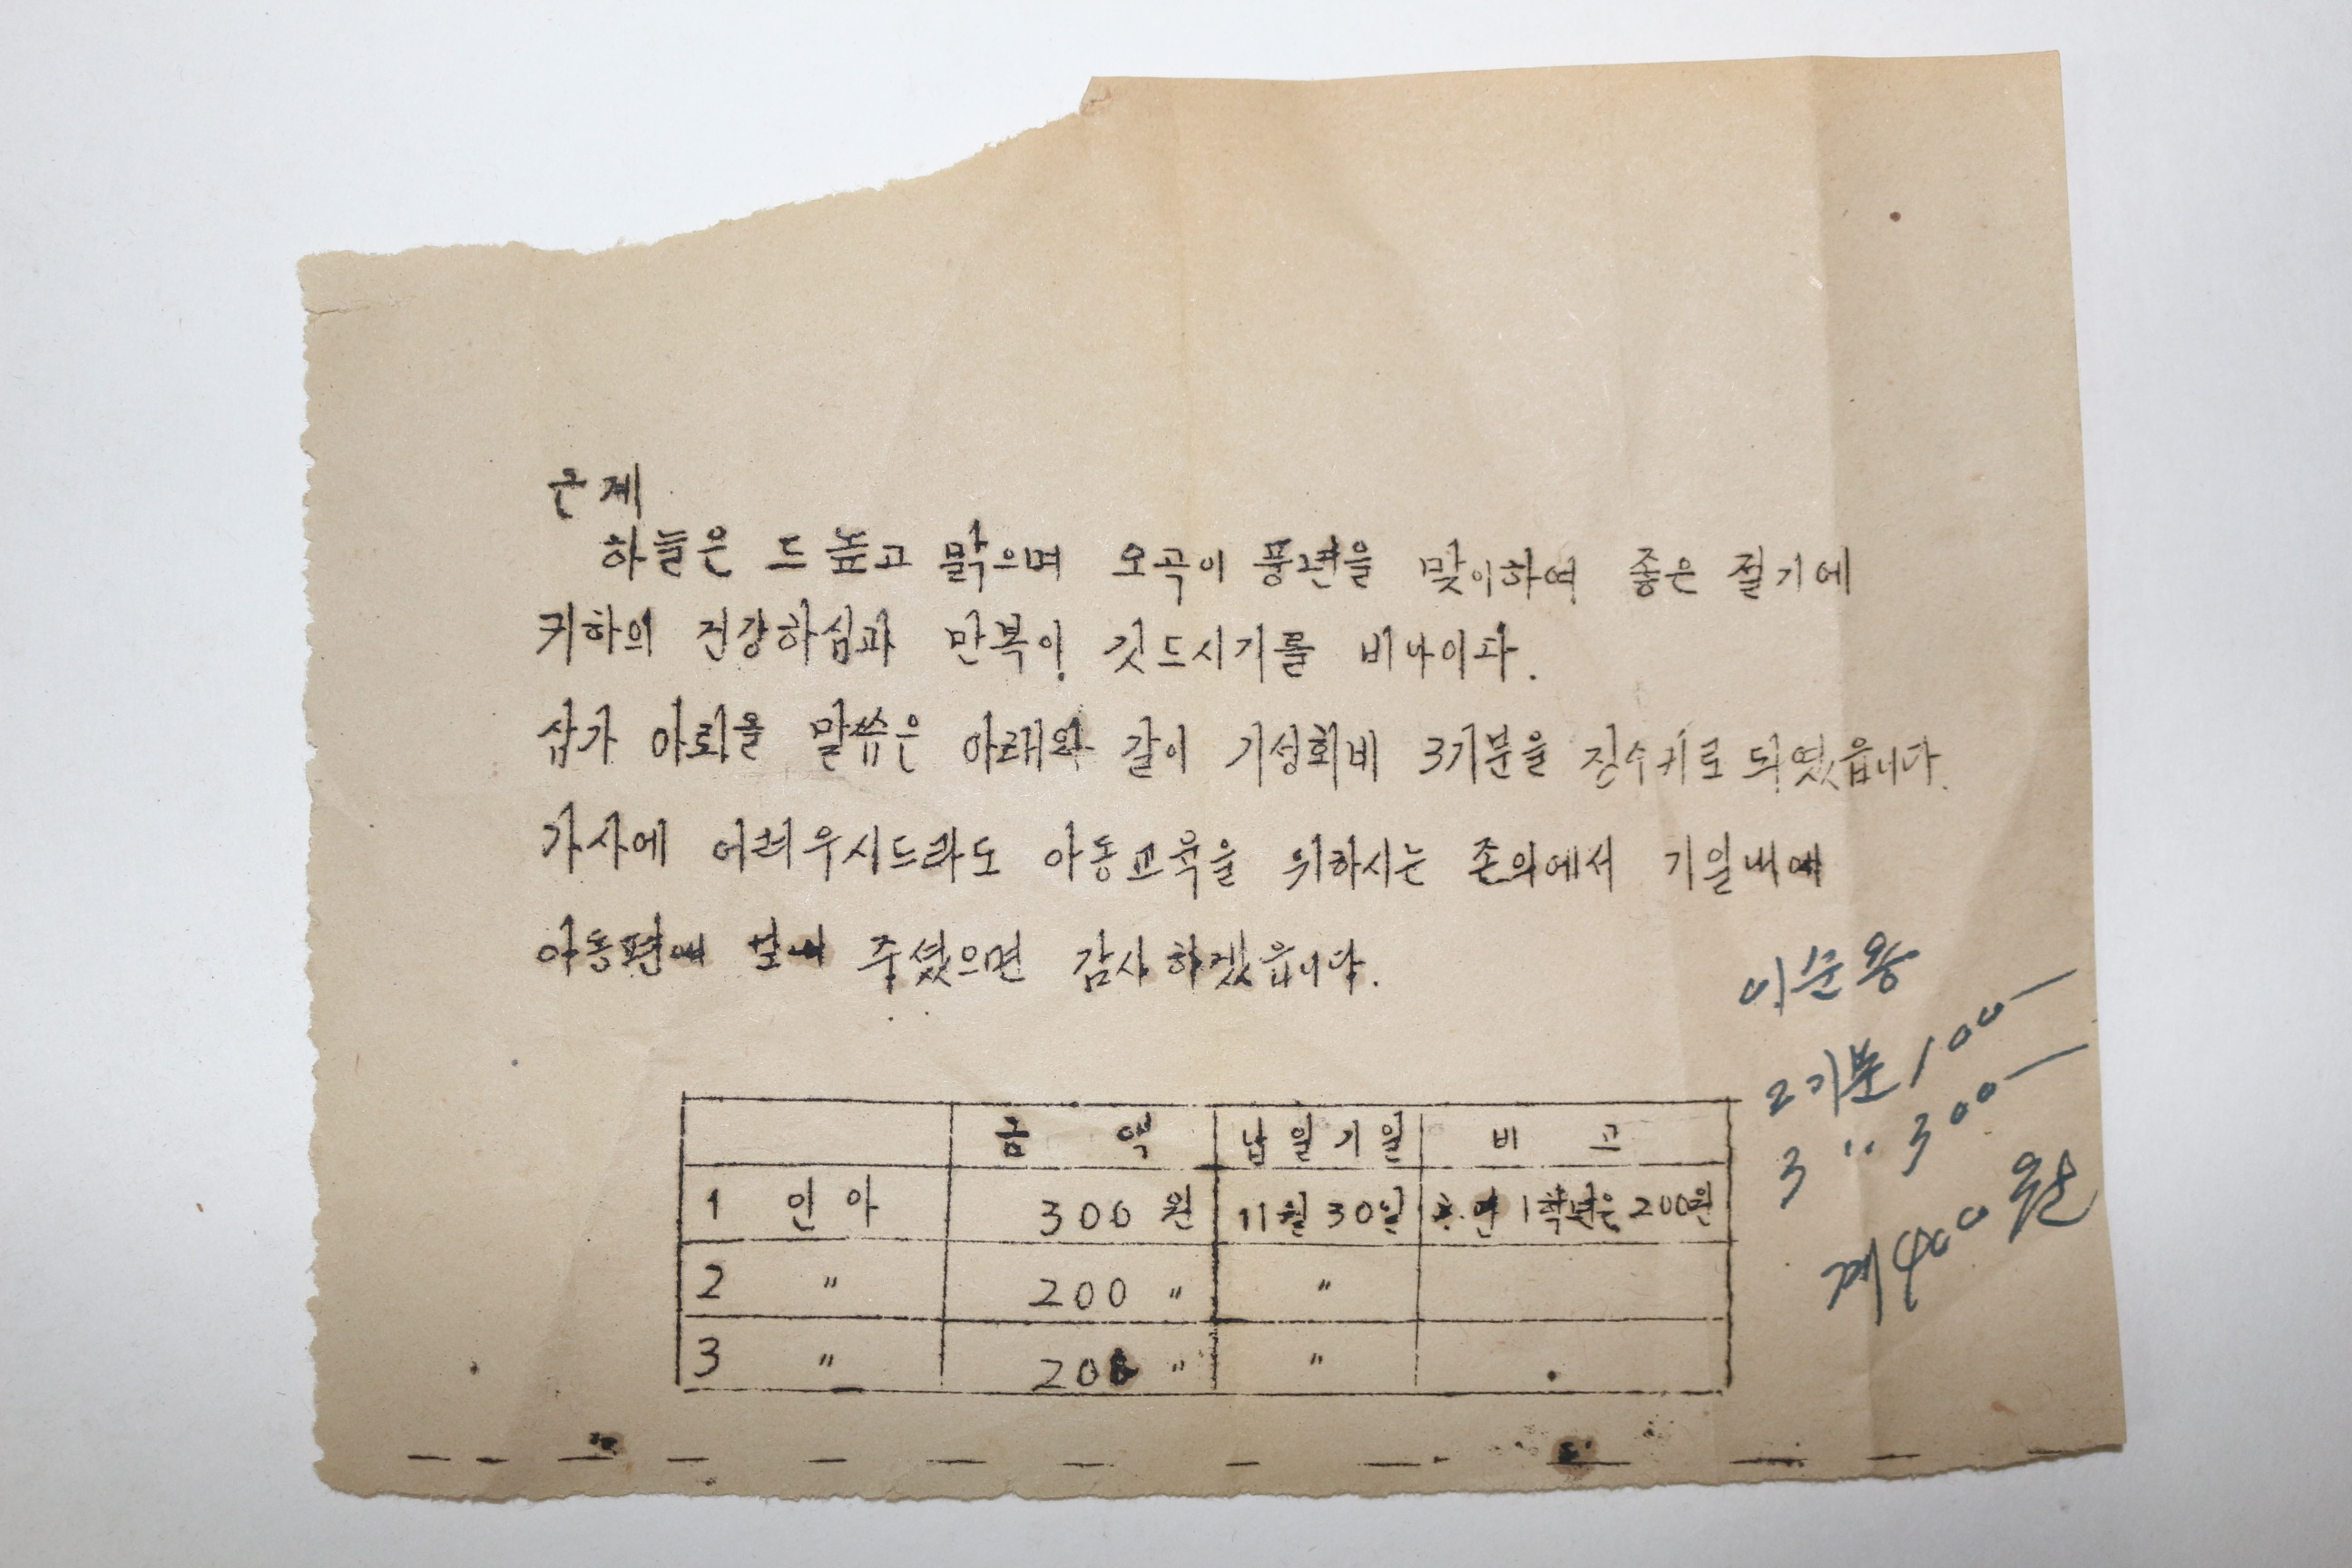 근계
하늘은 드높고 맑으며 오곡이 풍년을 맞이하여 좋은 절기에
귀하의 건강하심과 만복이 깃드시기를 비나이다.
삽가 아뢰올 말씀은 아래와 같이 기성회비 3기분을 징수키로 되였읍니다.
가사에 어려우시드라도 아동교육을 위하시는 존의에서 기일내에
아동편에 보내 주셨으면 감사하겠읍니다.
이순용
2기분 100-
3 〃 300-
계 400원
금 액 납월기일 비 고
1 인아 300원 11월30일 단 1학년은 200원
2 〃 200 〃 〃
3 〃 200 〃 〃